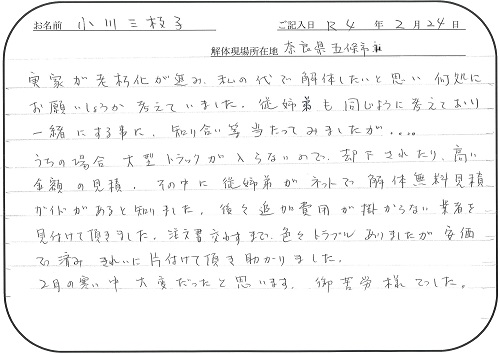 お名前 小川三枝子 ご記入日 R4 年 2 月 24 日
解体現場所在地 奈良県五條市
実家が老朽化が進み、私の代で解体したいと思い 何処に
お願いしようか 考えていました。従姉弟も同じように考えており
一緒にする事に、知り合い等当たってみましたが....
うちの場合 大型トラックが入らないので、却下されたり、高い
金額の見積。その中に従姉弟がネットで解体無料見積
ガイドがあると知りました。後々追加費用が掛からない業者を
見付けて頂きました。注文書交わすまで、色々トラブルありましたが 安価
で済み きれいに片付けて頂き助かりました。
2月の寒い中 大変だったと思います。御苦労様でした。